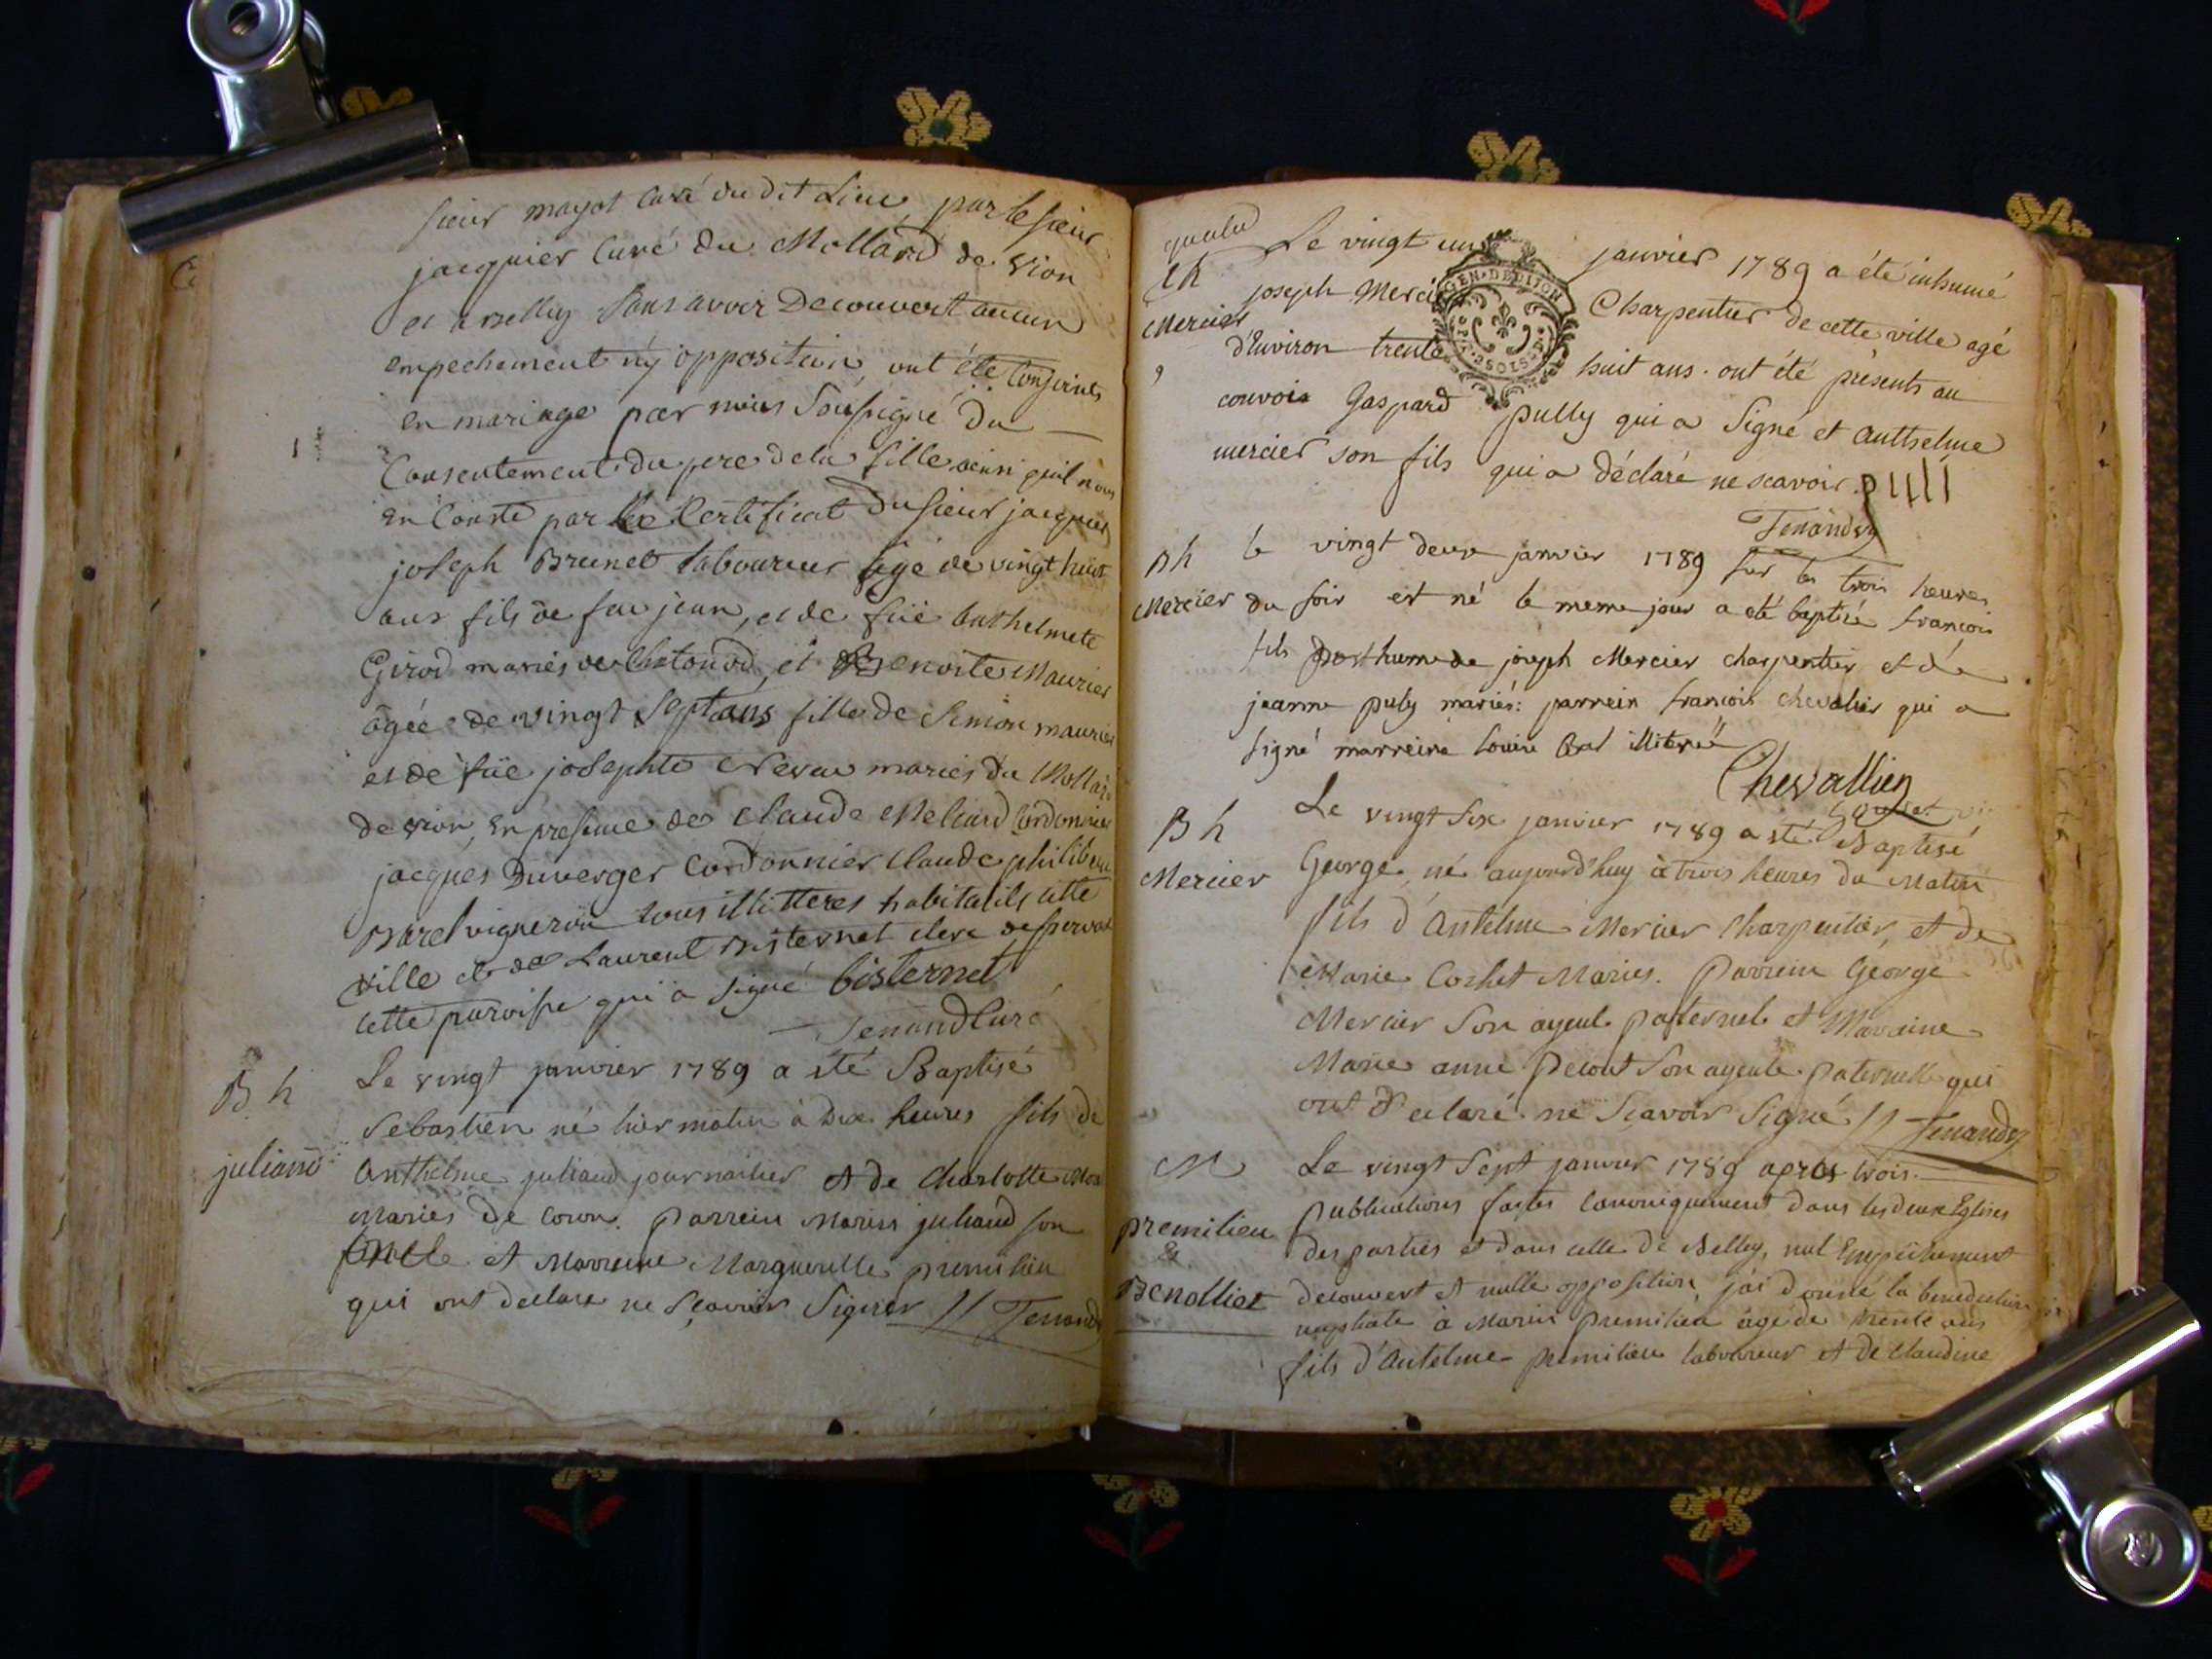 sieur mayot Curé du dit Lieu, par le sieur
jacquier Curé du Mollard de Vion
et a Belley sans avoir Decouvert aucun
empechement ny opposition ont été Conjoints
en mariage par nous Soussigné du
Consentement du pere de la fille ainsi qu'il nous
en Conste par le Certificat du sieur jacquier
joseph Brunet laboureur âgé de vingt huit
ans fils de feu jean, et de füe Anthelmete
Girod mariés de et Benoite Maurier
âgée de vingt Sept ans fille de Simon maurier
et de füe josephte mariés du Mollard
de vion, en presence de Claude Cordonnier
jacques Duverger Cordonnier Claude philibert
vigneron tous illitteres habitants cette
ville et de Laurent Bisternet clerc
cette paroisse qui a signé bisternet
Tenand Curé
B. h
juliand
Le vingt janvier 1789 a été Baptisé
Sebastien né hier matin à Dix heures fils de
Anthelme juliand journalier et de Charlotte
Mariés de Coron. Parrein Marin juliand son
oncle et Marreine Marguerite premilieu
qui ont declaré ne Sçavoir Signer // Tenand
Sh
Mercier
Le vingt un janvier 1789 a été inhumé
joseph Mercier Charpentier de cette ville agé
d'Environ trente huit ans. ont été présents au
convoi Gaspard pully qui a Signé et Anthelme
mercier son fils qui a déclaré ne scavoir. pulli
Tenand
Bh
Mercier
le vingt deux janvier 1789 sur les trois heures
du soir est né le meme jour a été baptisé françois
fils posthume de joseph Mercier charpentier et de
jeanne puly mariés: parrein françois chevalier qui a
signé marreine louise illiterée
Chevallier
B h
Mercier
Le vingt Six janvier 1789 a été Baptisé
George, né aujourd'huy à trois heures du Matin
fils d'Antelme Mercier Charpentier, et de
Marie Cochet Mariés. Parrein George
Mercier Son ayeul paternel et Maraine
Marie anne Son ayeule paternelle qui
ont Declaré ne Sçavoir Signé // Tenand
M
premilieu
&
Benollier
Le vingt Sept janvier 1789 après trois
publications faites Canoniquement dans les deux Eglises
des parties et dans celle de Belley, nul Empêchement
decouvert et nulle opposition, j'ai Donné la benediction
nuptiale à Marin Premilieu âgé de trente ans
fils d'Antelme premilieu laboureur et de Claudine